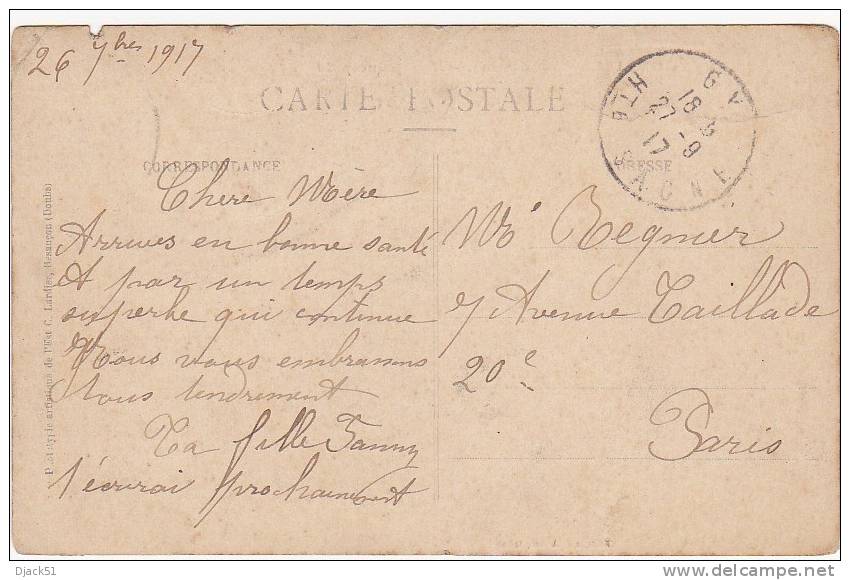 26 7bres 1917
CARTE POSTALE
CORRESPONDANCE
ADRESSE
GY
18 5
27 - 9
17
HTE SAONE
Chère Mère
Arrives en bonne santé
et par un temps
superbe qui continue
Nous vous embrassons
tous tendrement
Ta fille Fanny
t'écrirai prochainement
Me Regnier
7 Avenue Taillade
20e
Paris
Phototypie artistique de l'Est C. Lardier, Besançon (Doubs)
Djack51
delcampe.net